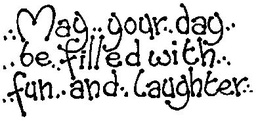 May your day
be filled with
fun and laughter